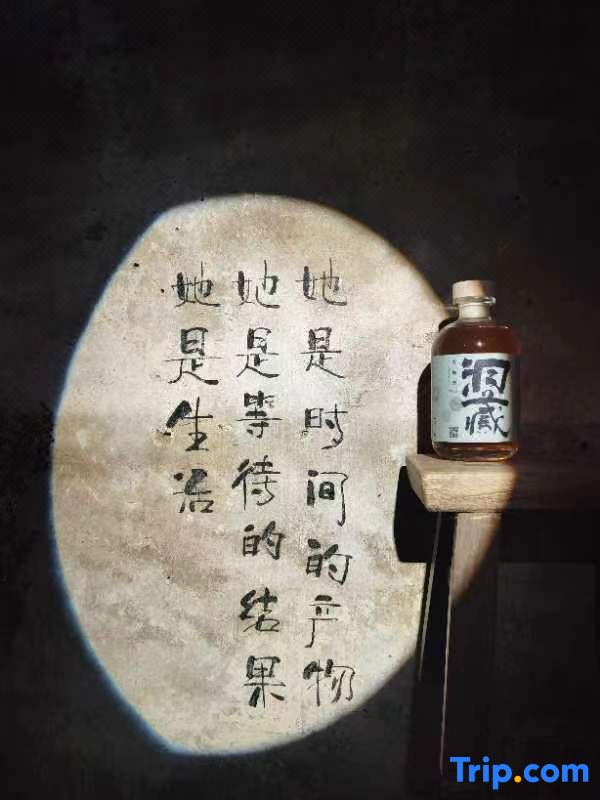 她是时间的产物
她是等待的结果
她是生活
洞藏
Trip.com